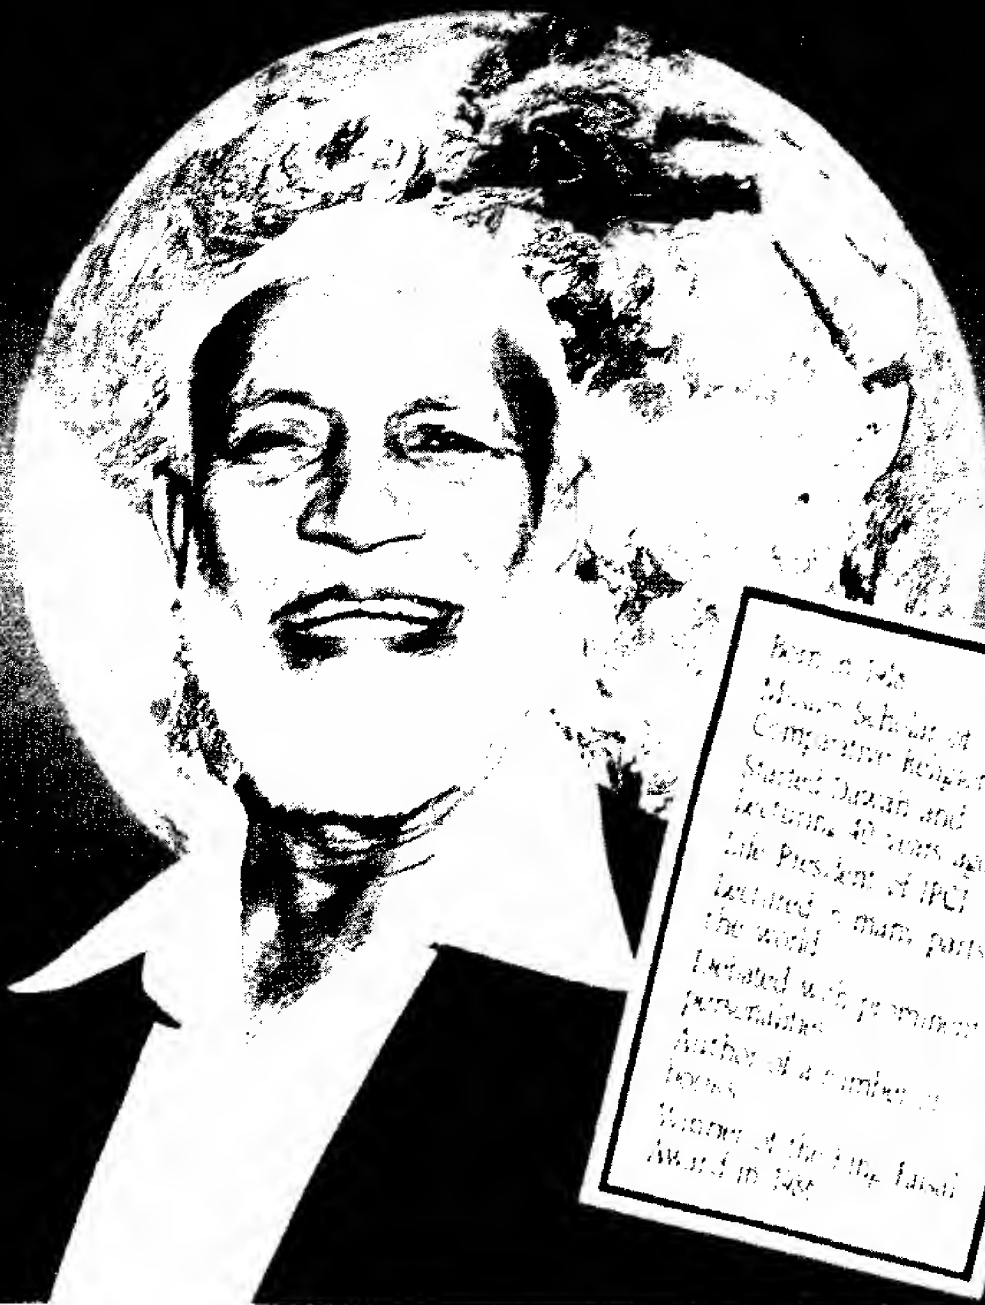 Born in 1918
Muslim Scholar of
Comparative Religion
Started Dawah and
Lecturing 40 years ago
Life President of IPCI
Lectured in many parts
the world
Debated with prominent
personalities
Author of a number of
books
Winner of the King Faisal
Award in 1986